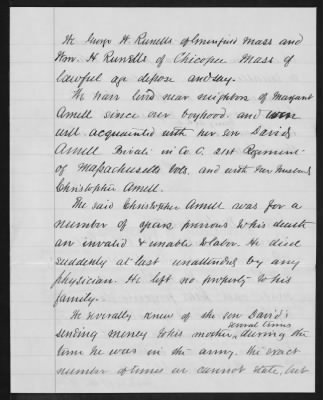 We George W. Runells of Greenfield Mass and
Wm. H Runells of Chicopee Mass of
lawful age depose and say.
We have lived near neighbors of Margaret
Amell since our boyhood and were
well acquainted with her son David
Amell Private in Co. C. 21st Regiment
of Massachusetts Vols. and with her husband
Christopher Amell.
The said Christopher Amell was for a
number of years previous to his death
an invalid & unable to labor. He died
suddenly at last unattended by any
physician. He left no property to his
family.
We severally knew of the son David's
sending money to his mother, several times during the
time he was in the army. The exact
number of times we cannot state, but